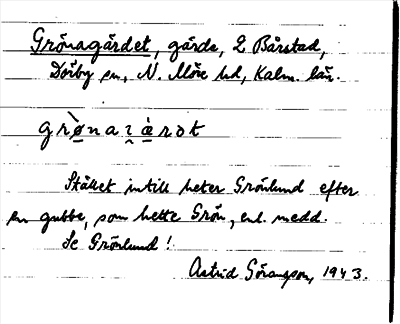 Grönagärdet, gärde, 2 Bårstad,
Dörby sn, N. Möre hd, Kalm. län.
grø̀naɿæ̀rdət
Stället intill heter Grönlund efter
en gubbe, som hette Grön, enl. medd.
Se Grönlund!
Astrid Göransson, 1943.